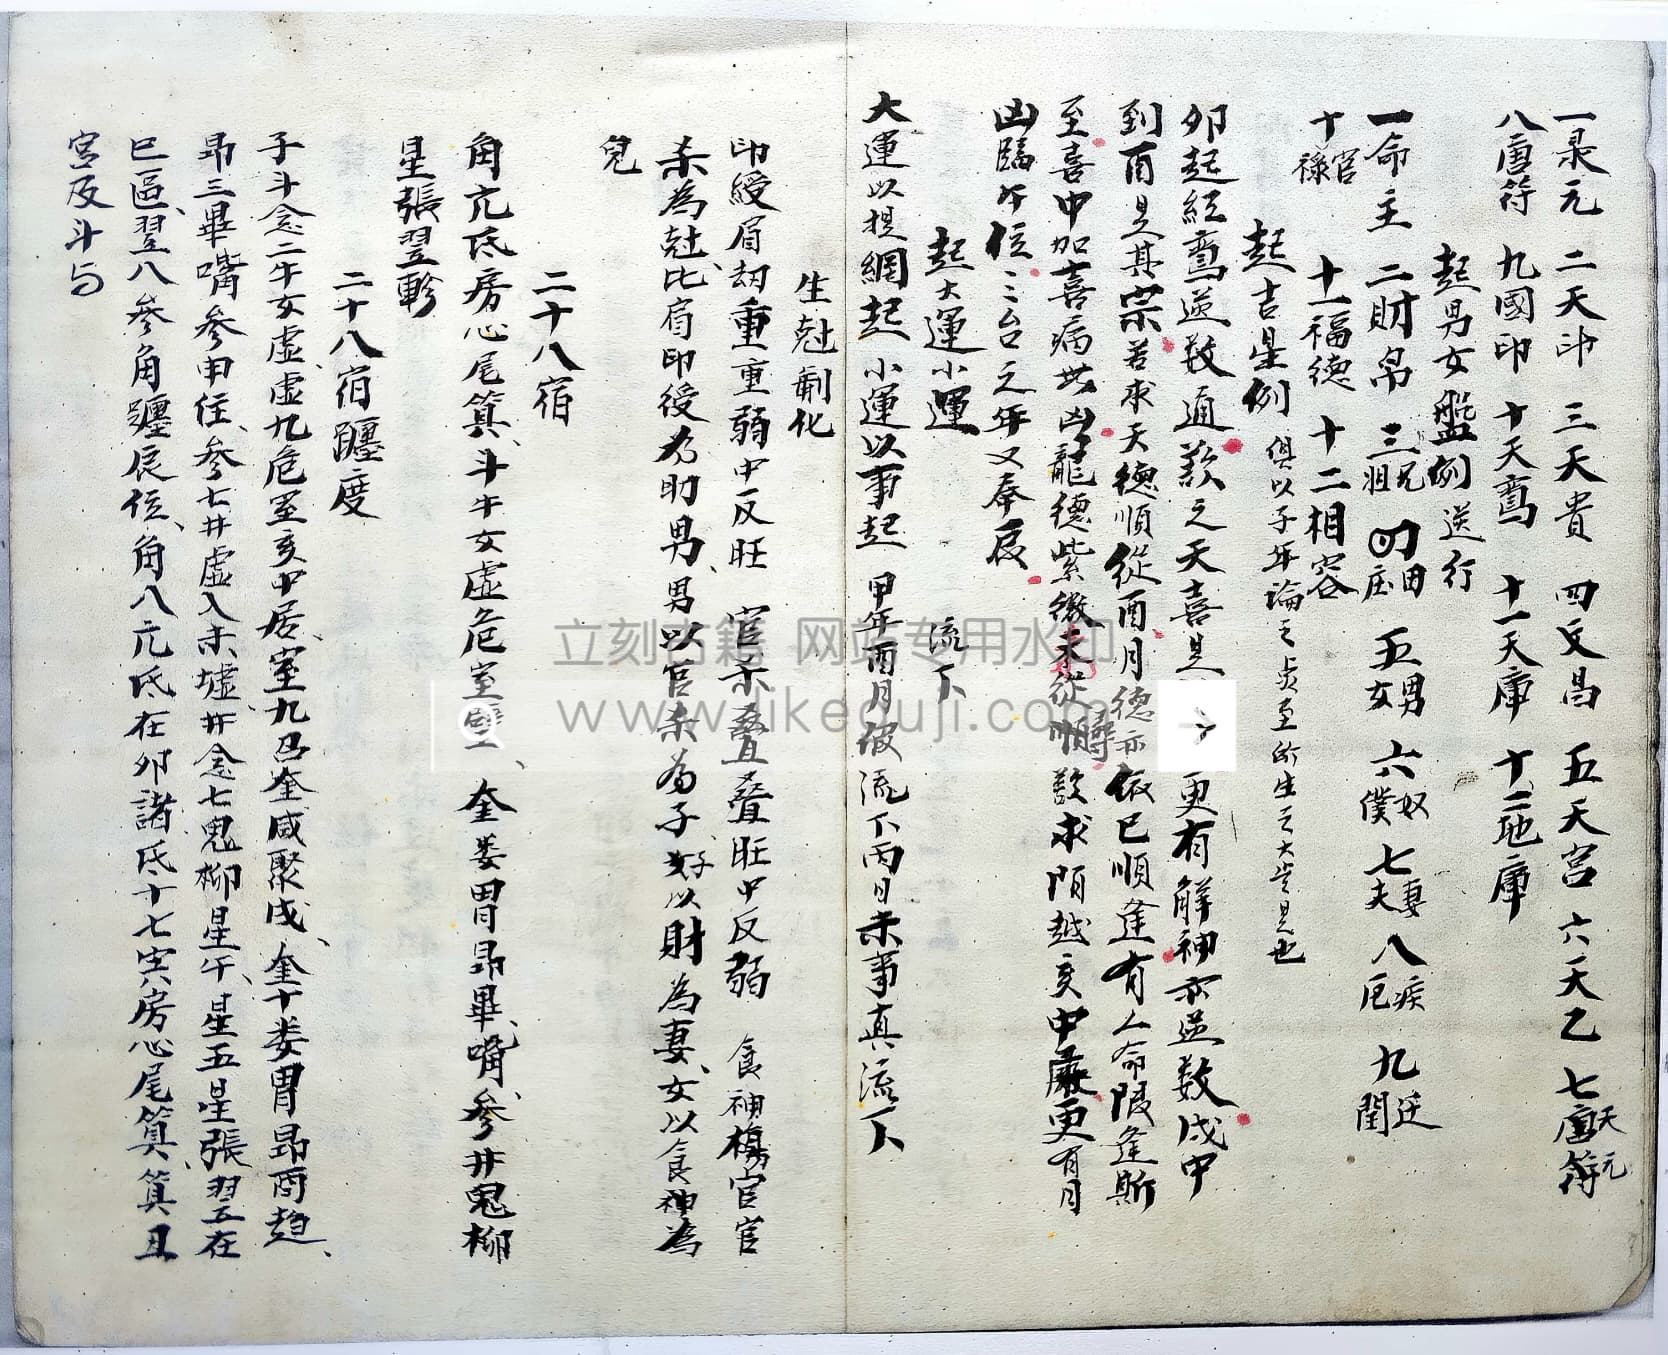 一录元　二天印　三天貴　四文昌　五天宮　六天乙　七唐符天元
八唐符　九國印　十天鸾　十一天庫　十二地庫
起男女盤例送行
一命主　二財帛　三兄　四田庄　五男女　六奴僕　七妻夫　八疾厄　九迁閏
十官禄　十一福德　十二相容
起吉星例　俱以子年論之
卯起紅鸾逆数通　欵之天喜是　更有解神亦逆数戌中
到酉是其宗若求天德順從酉月德亦依巳順逢有人命限逢斯
至喜中加喜病出凶龍德紫微未從順　欵求陌越亥中廠更有月
凶臨午位三台之年又奉辰
起大運小運　流下
大運以提綱起　小運以事起　甲年酉月　流下丙日未事真流下
生尅制化
印綬肩刼重重弱中反旺　官杀叠叠旺中反弱　食神傷官官
杀為尅比肩印授為助男男以官杀為子好以財為妻女以食神為
兒
二十八宿
角亢氐房心尾箕斗牛女虚危室壁奎娄胃昴畢嘴参井鬼柳
星張翌軫
二十八宿躔度
子斗念二牛女虚虚九危至亥中居室九召奎咸聚戌奎十娄胃昴酉趋
昴三畢嘴参申住参七井虚入未墟井念七鬼柳星午星五星張翌五在
巳區翌八參角躔辰位角八亢氐在卯諸氐十七寅房心尾箕箕丑
宮及斗与
立刻古籍 网站专用水印
www.likeguji.com